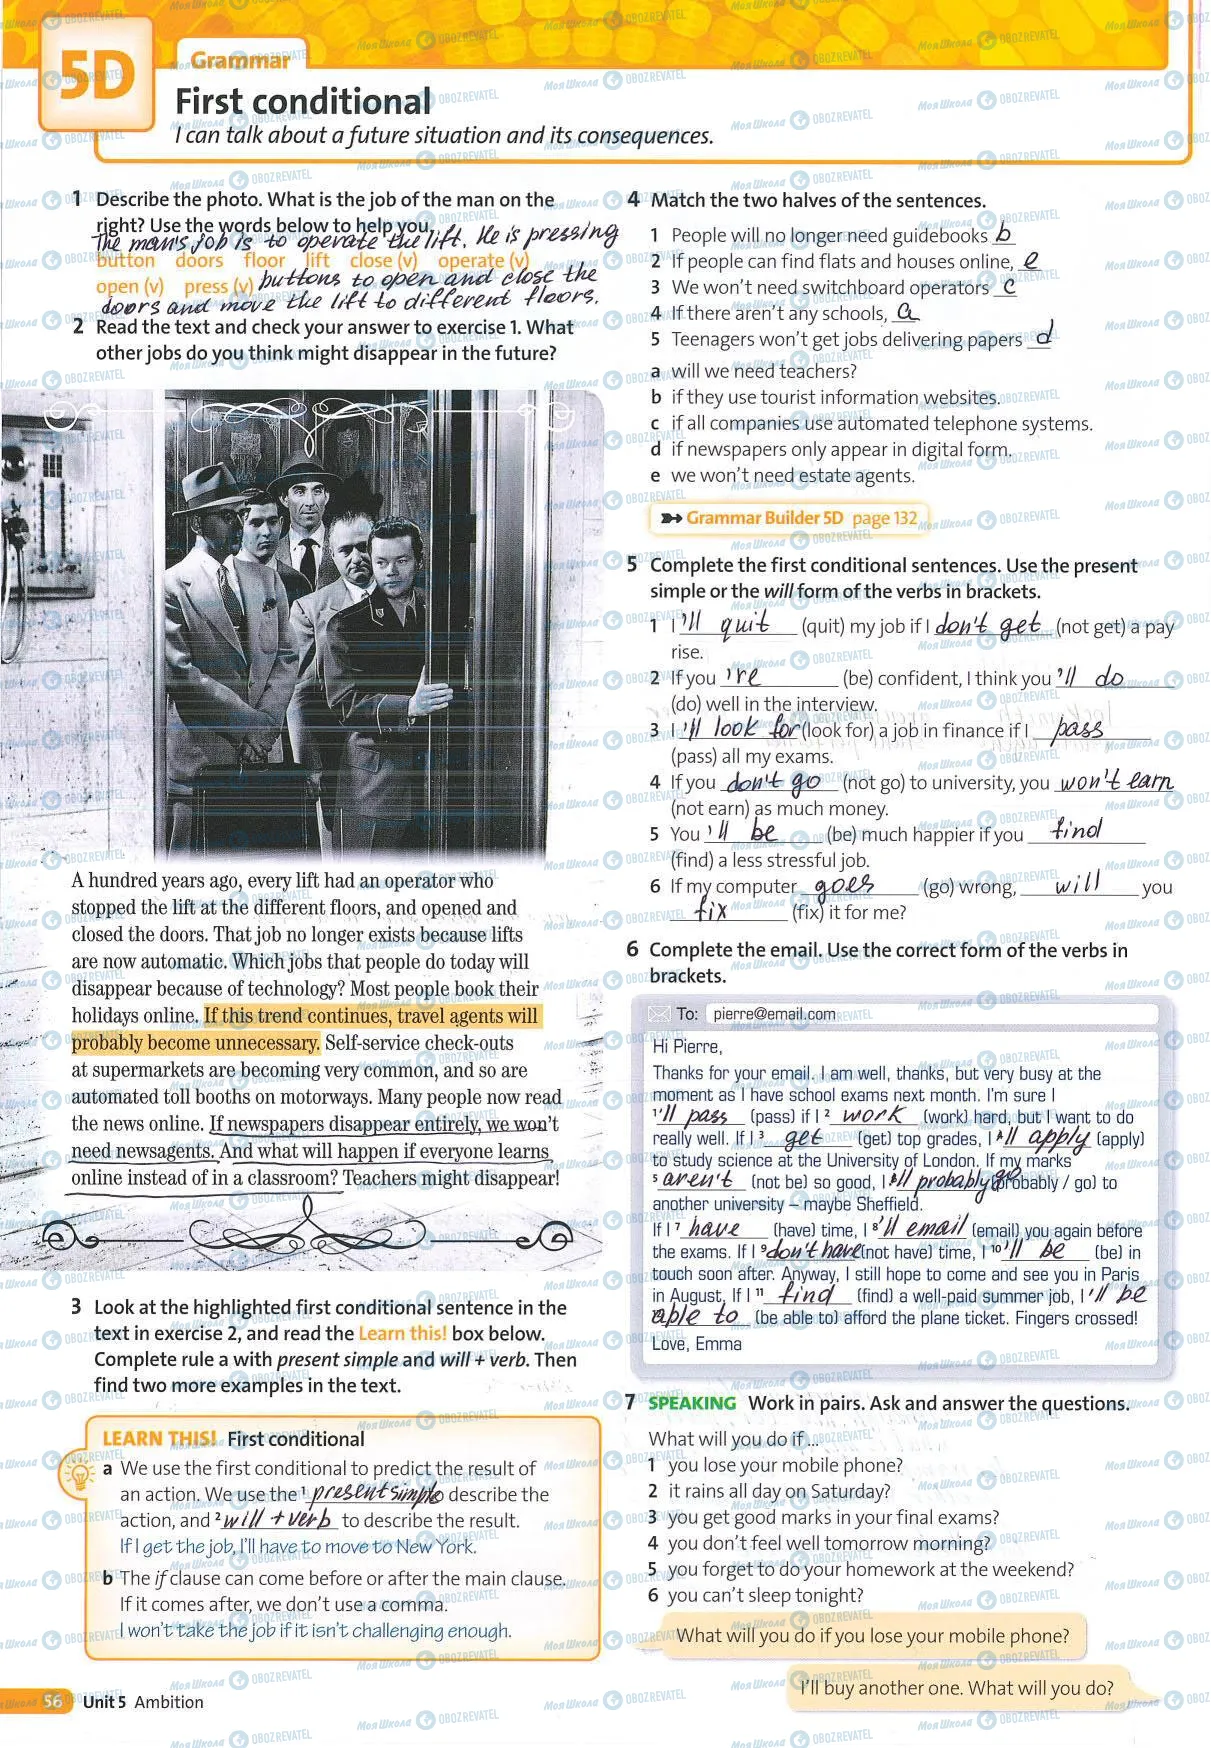 5D
Grammar
First conditional
I can talk about a future situation and its consequences.
1 Describe the photo. What is the job of the man on the
right? Use the words below to help you.
The man's job is to operate the lift. He is pressing
button doors floor lift close (v) operate (v)
open (v) press (v) buttons to open and close the
doors and move the lift to different floors.
2 Read the text and check your answer to exercise 1. What
other jobs do you think might disappear in the future?
A hundred years ago, every lift had an operator who
stopped the lift at the different floors, and opened and
closed the doors. That job no longer exists because lifts
are now automatic. Which jobs that people do today will
disappear because of technology? Most people book their
holidays online. If this trend continues, travel agents will
probably become unnecessary. Self-service check-outs
at supermarkets are becoming very common, and so are
automated toll booths on motorways. Many people now read
the news online. If newspapers disappear entirely, we won't
need newsagents. And what will happen if everyone learns
online instead of in a classroom? Teachers might disappear!
3 Look at the highlighted first conditional sentence in the
text in exercise 2, and read the Learn this! box below.
Complete rule a with present simple and will + verb. Then
find two more examples in the text.
LEARN THIS! First conditional
a We use the first conditional to predict the result of
an action. We use the 1 present simple describe the
action, and 2 will + verb to describe the result.
If I get the job, I'll have to move to New York.
b The if clause can come before or after the main clause.
If it comes after, we don't use a comma.
I won't take the job if it isn't challenging enough.
56 Unit 5 Ambition
4 Match the two halves of the sentences.
1 People will no longer need guidebooks b
2 If people can find flats and houses online, e
3 We won't need switchboard operators c
4 If there aren't any schools, a
5 Teenagers won't get jobs delivering papers d
a will we need teachers?
b if they use tourist information websites.
c if all companies use automated telephone systems.
d if newspapers only appear in digital form.
e we won't need estate agents.
Grammar Builder 5D page 132
5 Complete the first conditional sentences. Use the present
simple or the will form of the verbs in brackets.
1 I 'll quit (quit) my job if I don't get (not get) a pay
rise.
2 If you 're (be) confident, I think you 'll do
(do) well in the interview.
3 I 'll look for (look for) a job in finance if I pass
(pass) all my exams.
4 If you don't go (not go) to university, you won't earn
(not earn) as much money.
5 You 'll be (be) much happier if you find
(find) a less stressful job.
6 If my computer goes (go) wrong, will you
fix (fix) it for me?
6 Complete the email. Use the correct form of the verbs in
brackets.
To: pierre@email.com
Hi Pierre,
Thanks for your email. I am well, thanks, but very busy at the
moment as I have school exams next month. I'm sure I
1 'll pass (pass) if I 2 work (work) hard, but I want to do
really well. If I 3 get (get) top grades, I 4 'll apply (apply)
to study science at the University of London. If my marks
5 aren't (not be) so good, I 6 'll probably go (probably / go) to
another university – maybe Sheffield.
If I 7 have (have) time, I 8 'll email (email) you again before
the exams. If I 9 don't have (not have) time, I 10 'll be (be) in
touch soon after. Anyway, I still hope to come and see you in Paris
in August. If I 11 find (find) a well-paid summer job, I 'll be
able to (be able to) afford the plane ticket. Fingers crossed!
Love, Emma
7 SPEAKING Work in pairs. Ask and answer the questions.
What will you do if ...
1 you lose your mobile phone?
2 it rains all day on Saturday?
3 you get good marks in your final exams?
4 you don't feel well tomorrow morning?
5 you forget to do your homework at the weekend?
6 you can't sleep tonight?
What will you do if you lose your mobile phone?
I'll buy another one. What will you do?
Моя Школа OBOZREVATEL